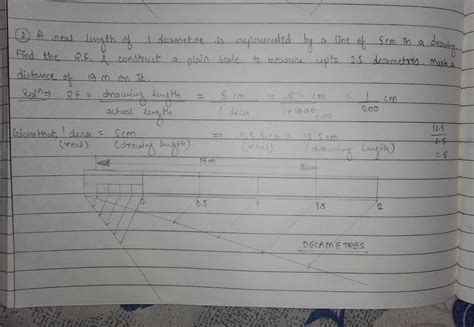 ② A real length of 1 decametre is represented by a line of 5cm in a drawing.
Find the R.F. & construct a plain scale to measure upto 2.5 decametres. Mark a
distance of 19 m on it.
Solⁿ⇒ R.F = drawing length / actual length = 5 cm / 1 deca = 5 cm / 1×1000 = 1 / 200 cm
Given that, 1 deca = 5cm ⇒ 2.5 deca = 12.5 cm
(real) (drawing length) (real) (drawing length)
12.5
2.5
= 5
19m
0 0.5 1 1.5 2
DECAMETRES